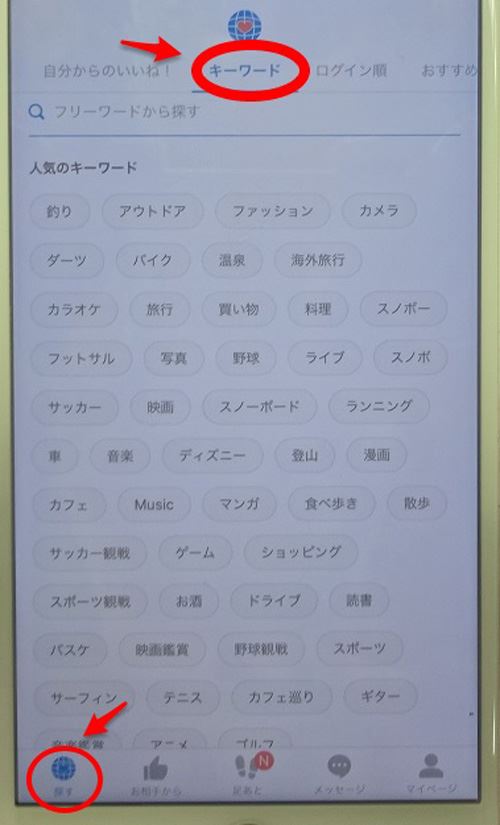 自分からのいいね！ キーワード ログイン順 おすすめ
フリーワードから探す
人気のキーワード
釣り アウトドア ファッション カメラ
ダーツ バイク 温泉 海外旅行
カラオケ 旅行 買い物 料理 スノボー
フットサル 写真 野球 ライブ スノボ
サッカー 映画 スノーボード ランニング
車 音楽 ディズニー 登山 漫画
カフェ Music マンガ 食べ歩き 散歩
サッカー観戦 ゲーム ショッピング
スポーツ観戦 お酒 ドライブ 読書
バスケ 映画鑑賞 野球観戦 スポーツ
サーフィン テニス カフェ巡り ギター
音楽鑑賞 アニメ ゴルフ
N
探す お相手から 足あと メッセージ マイページ